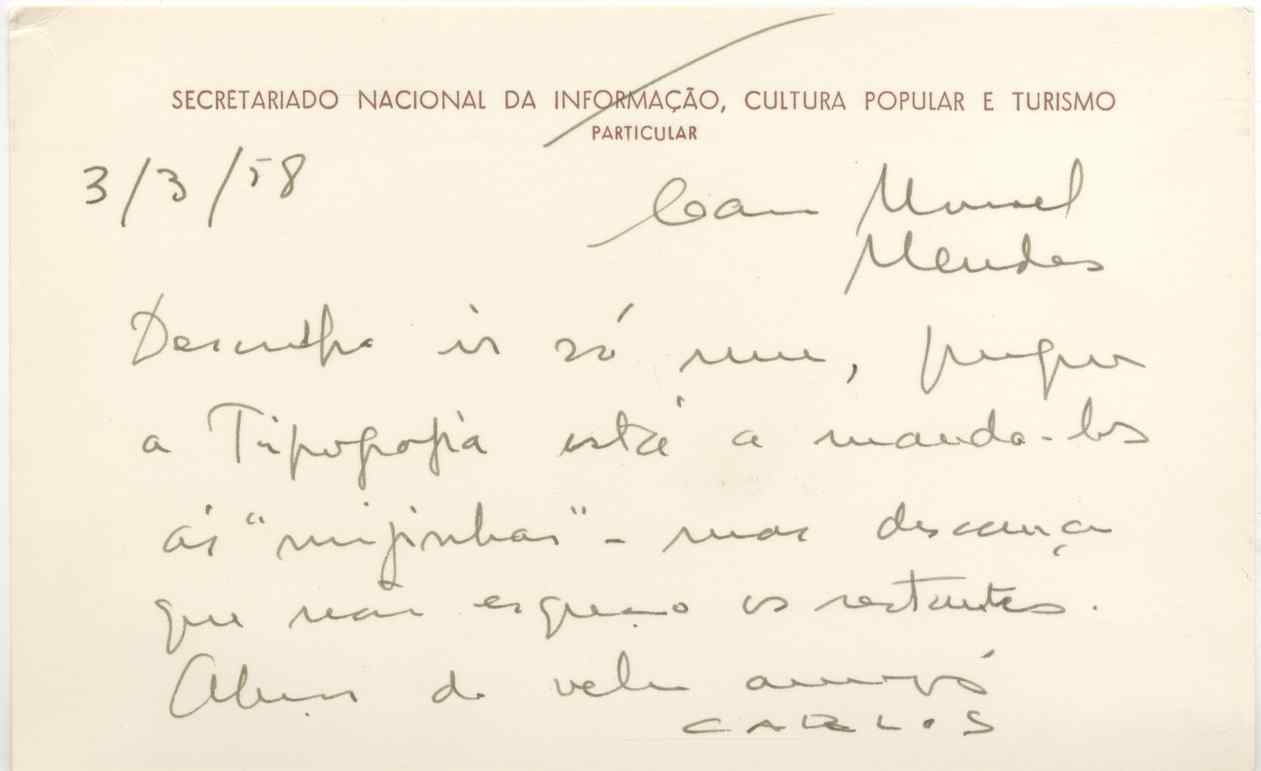 SECRETARIADO NACIONAL DA INFORMAÇÃO, CULTURA POPULAR E TURISMO
PARTICULAR
3/3/58
Caro Manuel
Mendes
Desculpa ir só um, porque
a Tipografia está a manda-los
ás "mijinhas" - mas descança
que não esqueço os restantes.
Abraço do velho amigo
CARLOS